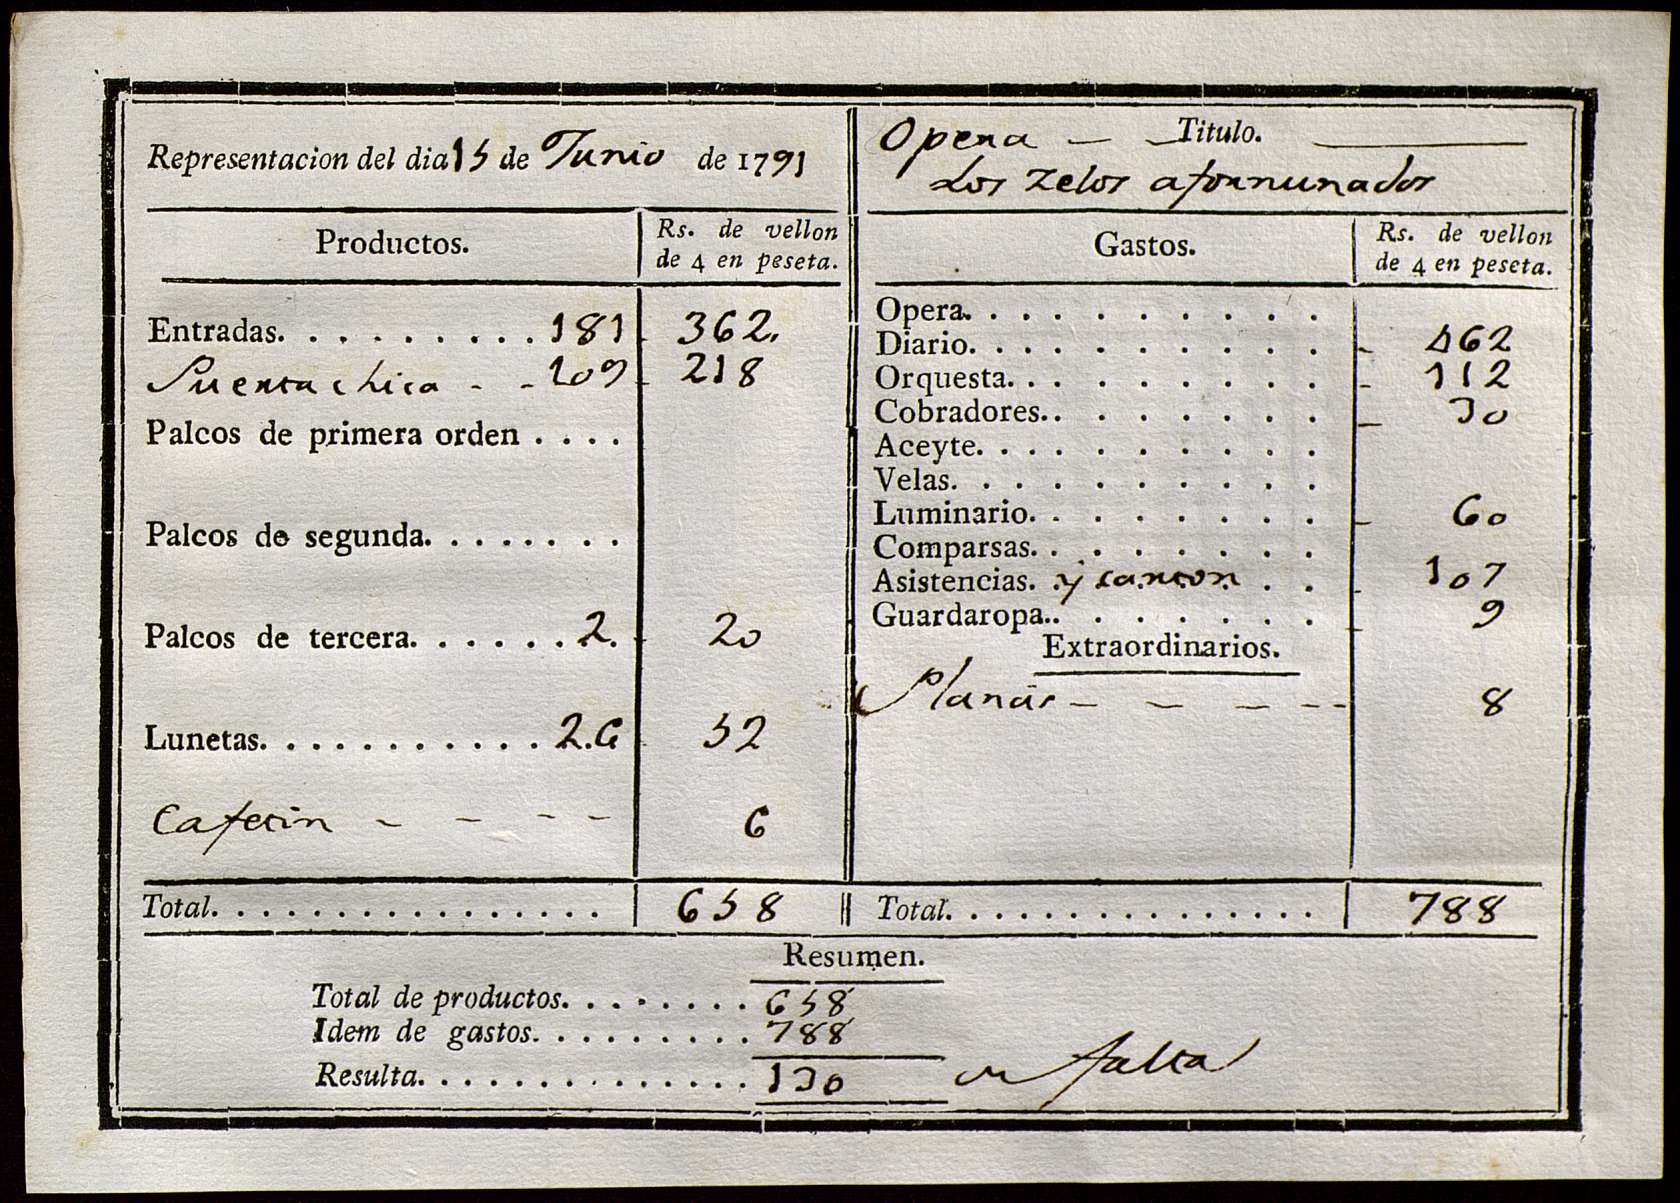 Representacion del dia 15 de Junio de 1791
Productos. Rs. de vellon de 4 en peseta.
Entradas. . . . . . . . . 181 362.
Puerta chica - - 109 218
Palcos de primera orden . . . .
Palcos de segunda. . . . . . . .
Palcos de tercera. . . . . . 2. 20
Lunetas. . . . . . . . . . . . 26 52
Cafetin - - - - 6
Total. . . . . . . . . . . . . . . . 658
Opera - - Titulo.
Los Zelos afortunados
Gastos. Rs. de vellon de 4 en peseta.
Opera. . . . . . . . . .
Diario. . . . . . . . . . - 462
Orquesta. . . . . . . . . - 112
Cobradores. . . . . . . . - 30
Aceyte. . . . . . . . . .
Velas. . . . . . . . . .
Luminario. . . . . . . . - 60
Comparsas. . . . . . . .
Asistencias. y carton . . - 107
Guardaropa. . . . . . . . - 9
Extraordinarios.
Planas - - - - - 8
Total. . . . . . . . . . . . . . . . 788
Resumen.
Total de productos. . . . . . . . 658
Idem de gastos. . . . . . . . . 788
Resulta. . . . . . . . . . . . . . 130 en falta